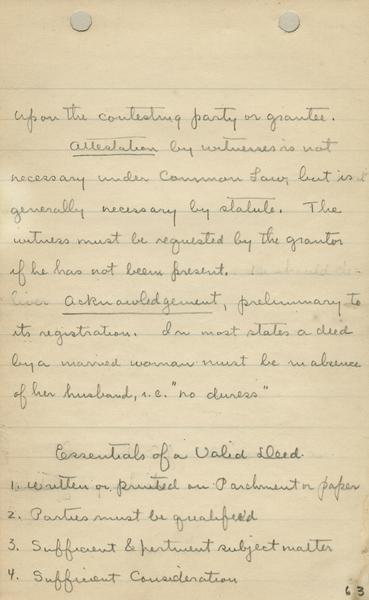 upon the contesting party or grantee.
Attestation by witnesses is not
necessary under Common Law, but is it
generally necessary by statute. The
witness must be requested by the grantor
if he has not been present. He should de-
liver acknowledgement, preliminary to
its registration. In most states a deed
by a married woman must be in absence
of her husband, i.e. "no duress"
Essentials of a Valid Deed.
1. Written or printed on Parchment or paper
2. Parties must be qualified
3. Sufficient & pertinent subject matter
4. Sufficient Consideration
63